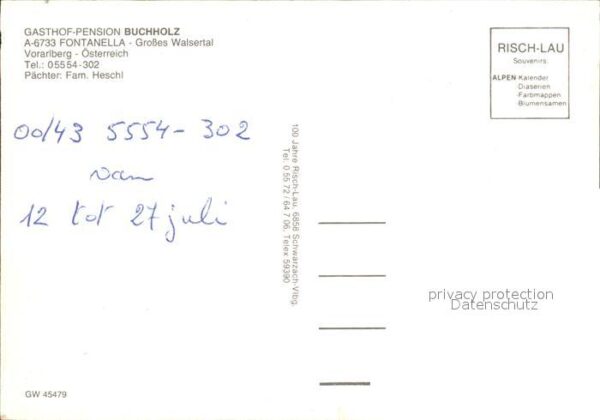 GASTHOF-PENSION BUCHHOLZ
A-6733 FONTANELLA - Großes Walsertal
Vorarlberg - Österreich
Tel.: 05554-302
Pächter: Fam. Heschl
RISCH-LAU
Souvenirs:
ALPEN-Kalender
-Diaserien
-Farbmappen
-Blumensamen
00/43 5554-302
van
12 tot 27 juli
100 Jahre Risch-Lau, 6858 Schwarzach-Vlbg.
Tel. 0 55 72 / 64 7 06, Telex 59390
privacy protection
Datenschutz
GW 45479